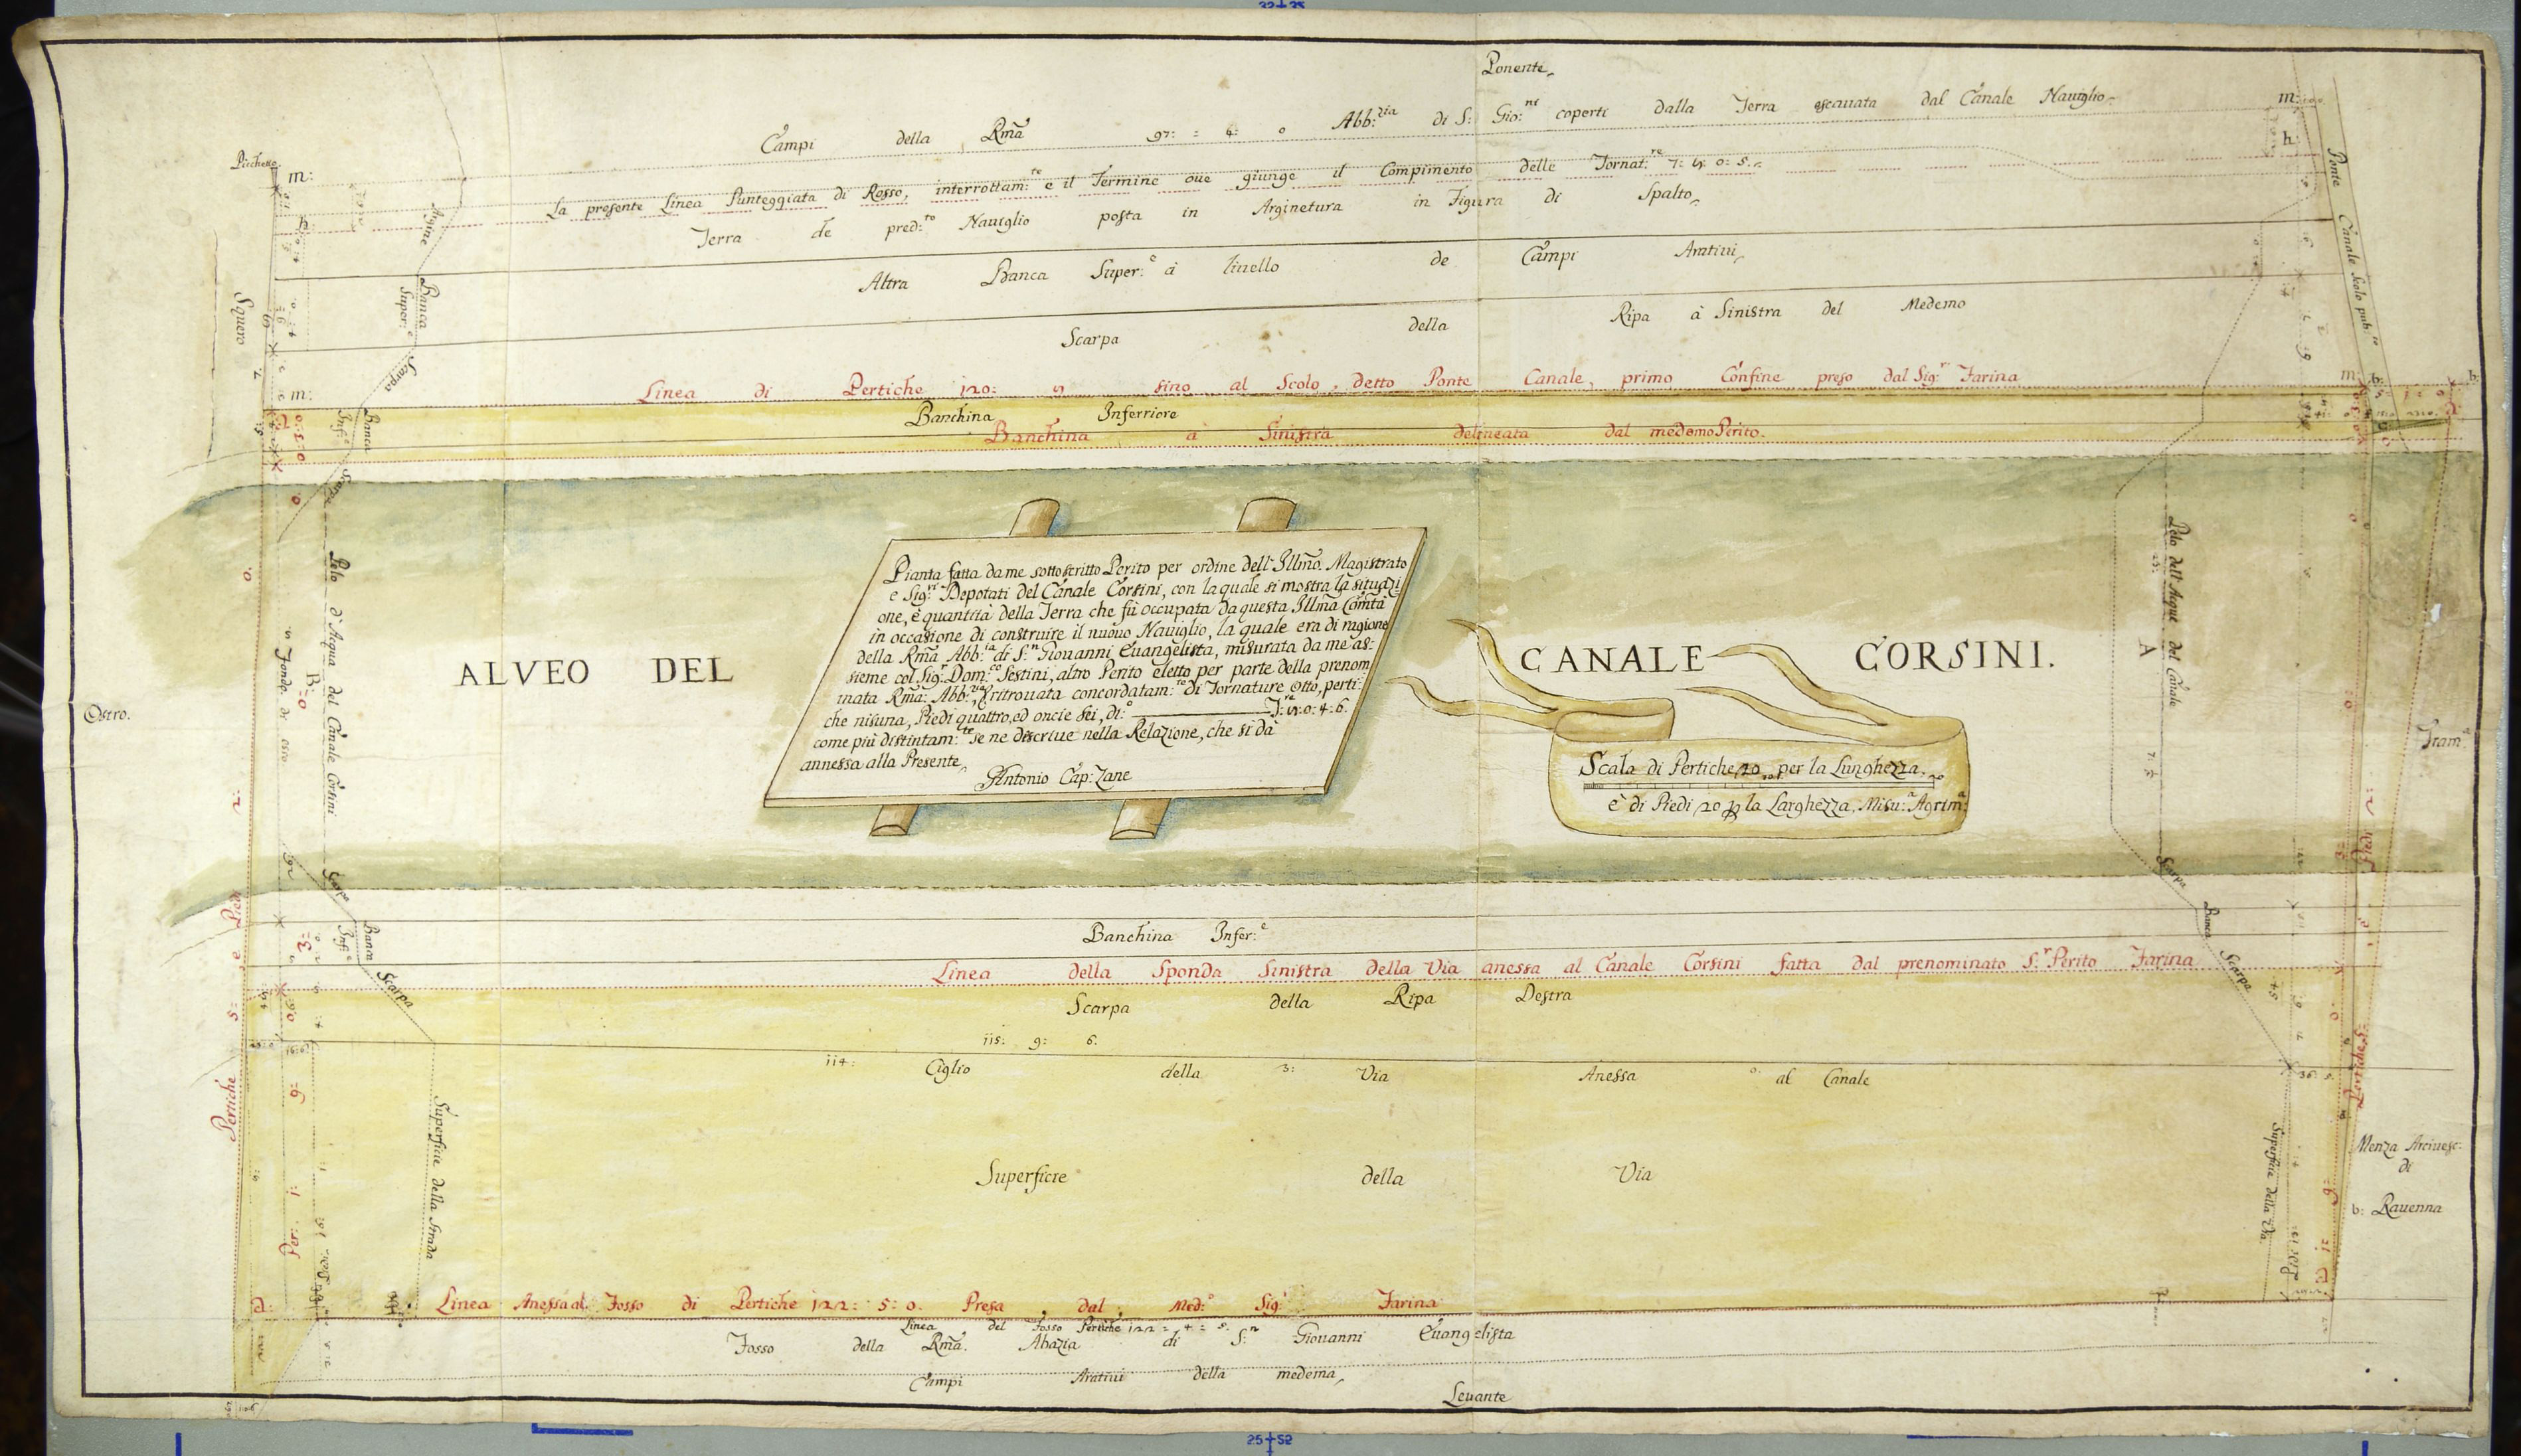 32+35
Ponente
Campi della Rma 97: = 4: 0 Abb:zia di S: Gio:ni coperti dalla Terra escauata dal Canale Nauiglio
m:
h
Picchetto
m:
La presente Linea Punteggiata di Rosso, interrottam:te è il Termine oue giunge il Compimento delle Tornat:re 7:
h:
Terra de pred:to Nauiglio posta in Arginetura in Figura di Spalto
Argine
Ponte Canale Scolo pub:co
Altra Banca Super:e à liuello de Campi Aratiui
Banca Super:e
Squero
Scarpa della Ripa à Sinistra del Medemo
Scarpa
Linea di Pertiche 120: 9 sino al Scolo, detto Ponte Canale, primo Confine preso dal Sig:r Farina
m:
m:
b:
b:
Banchina Inferiore
Banca Inf:e
Banchina à Sinistra delineata dal medemo Perito.
Scarpa
Pianta fatta da me sottoscritto Perito per ordine dell' Illmo. Magistrato
e Sig:ri Depotati del Canale Corsini, con la quale si mostra la situazi-
one, è quantità della Terra che fù occupata da questa Illma Comtà
in occasione di construire il nuouo Nauiglio, la quale era di ragione
della Rma Abb:ia di S:n Giouanni Euangelista, misurata da me as:
sieme col Sig:r Dom:co Sestini, altro Perito eletto per parte della prenom
inata Rma: Abb:zia, è ritrouata concordatam:te di Tornature Otto, perti:
che nisuna, Piedi quattro, ed oncie sei, di:o T:re 8:0:4:6.
come più distintam:te se ne discriue nella Relazione, che si dà
annessa alla Presente
Antonio Cap: Zane
ALVEO DEL CANALE CORSINI.
Pelo d'Acqua del Canale Corsini
B:
Fondo di
Pelo dell'Acque del Canale
A
Ostro.
Tram:a
Scala di Pertiche 20 per la Lunghezza.
è di Piedi 20 p la Larghezza. Misu:a Agrim:a
Scarpa
Scarpa
Banca Inf:e
Banca
Banchina Infer:e
Linea della Sponda Sinistra della Via anessa al Canale Corsini fatta dal prenominato S:r Perito Farina
Scarpa
Scarpa
Scarpa della Ripa Destra
115: 9: 6.
114: Ciglio della 3: Via Anessa 0: al Canale
Pertiche 5: e Piedi 2: 0.
Pertiche 5: è Piedi 2:
Superficie della Via
Superficie della Strada
Superficie della Via
Per: 1: 9: 3:
Menza Arciuesc:
di
b: Rauenna
Linea Anessa al Fosso di Pertiche 122: 5: 0. Presa dal Med:o Sig:r Farina
Linea del Fosso Pertiche 122 = 4 = 5:
Fosso della Rma. Abazia di S:n Giouanni Euangelista
Campi Aratiui della medema
Leuante
25+52